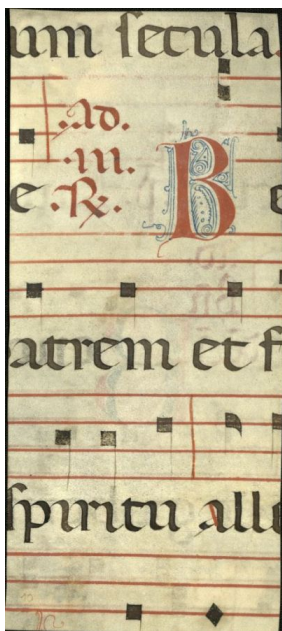 um secula.
.ad.
.iii.
e .℟. B e
atrem et f
spiritu alle